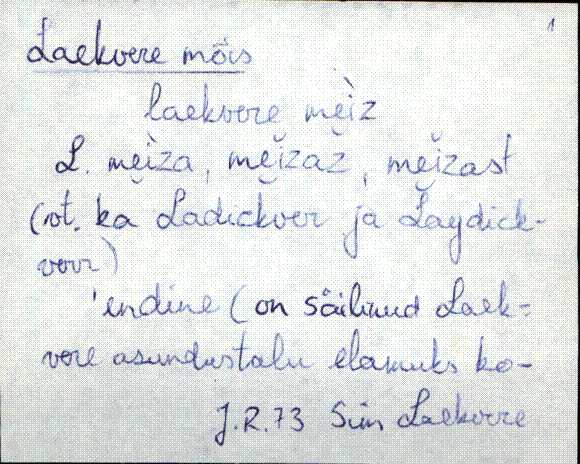 1
Laekvere mõis
laekvere mèi̮z
L. mèi̮za, mĕi̮zaž, mĕi̮zast
(vt. ka Ladickver ja Laydick-
verr)
'endine (on säilinud Laek=
vere asundustalu elamuks ko-
J.R.73 Sim Laekvere